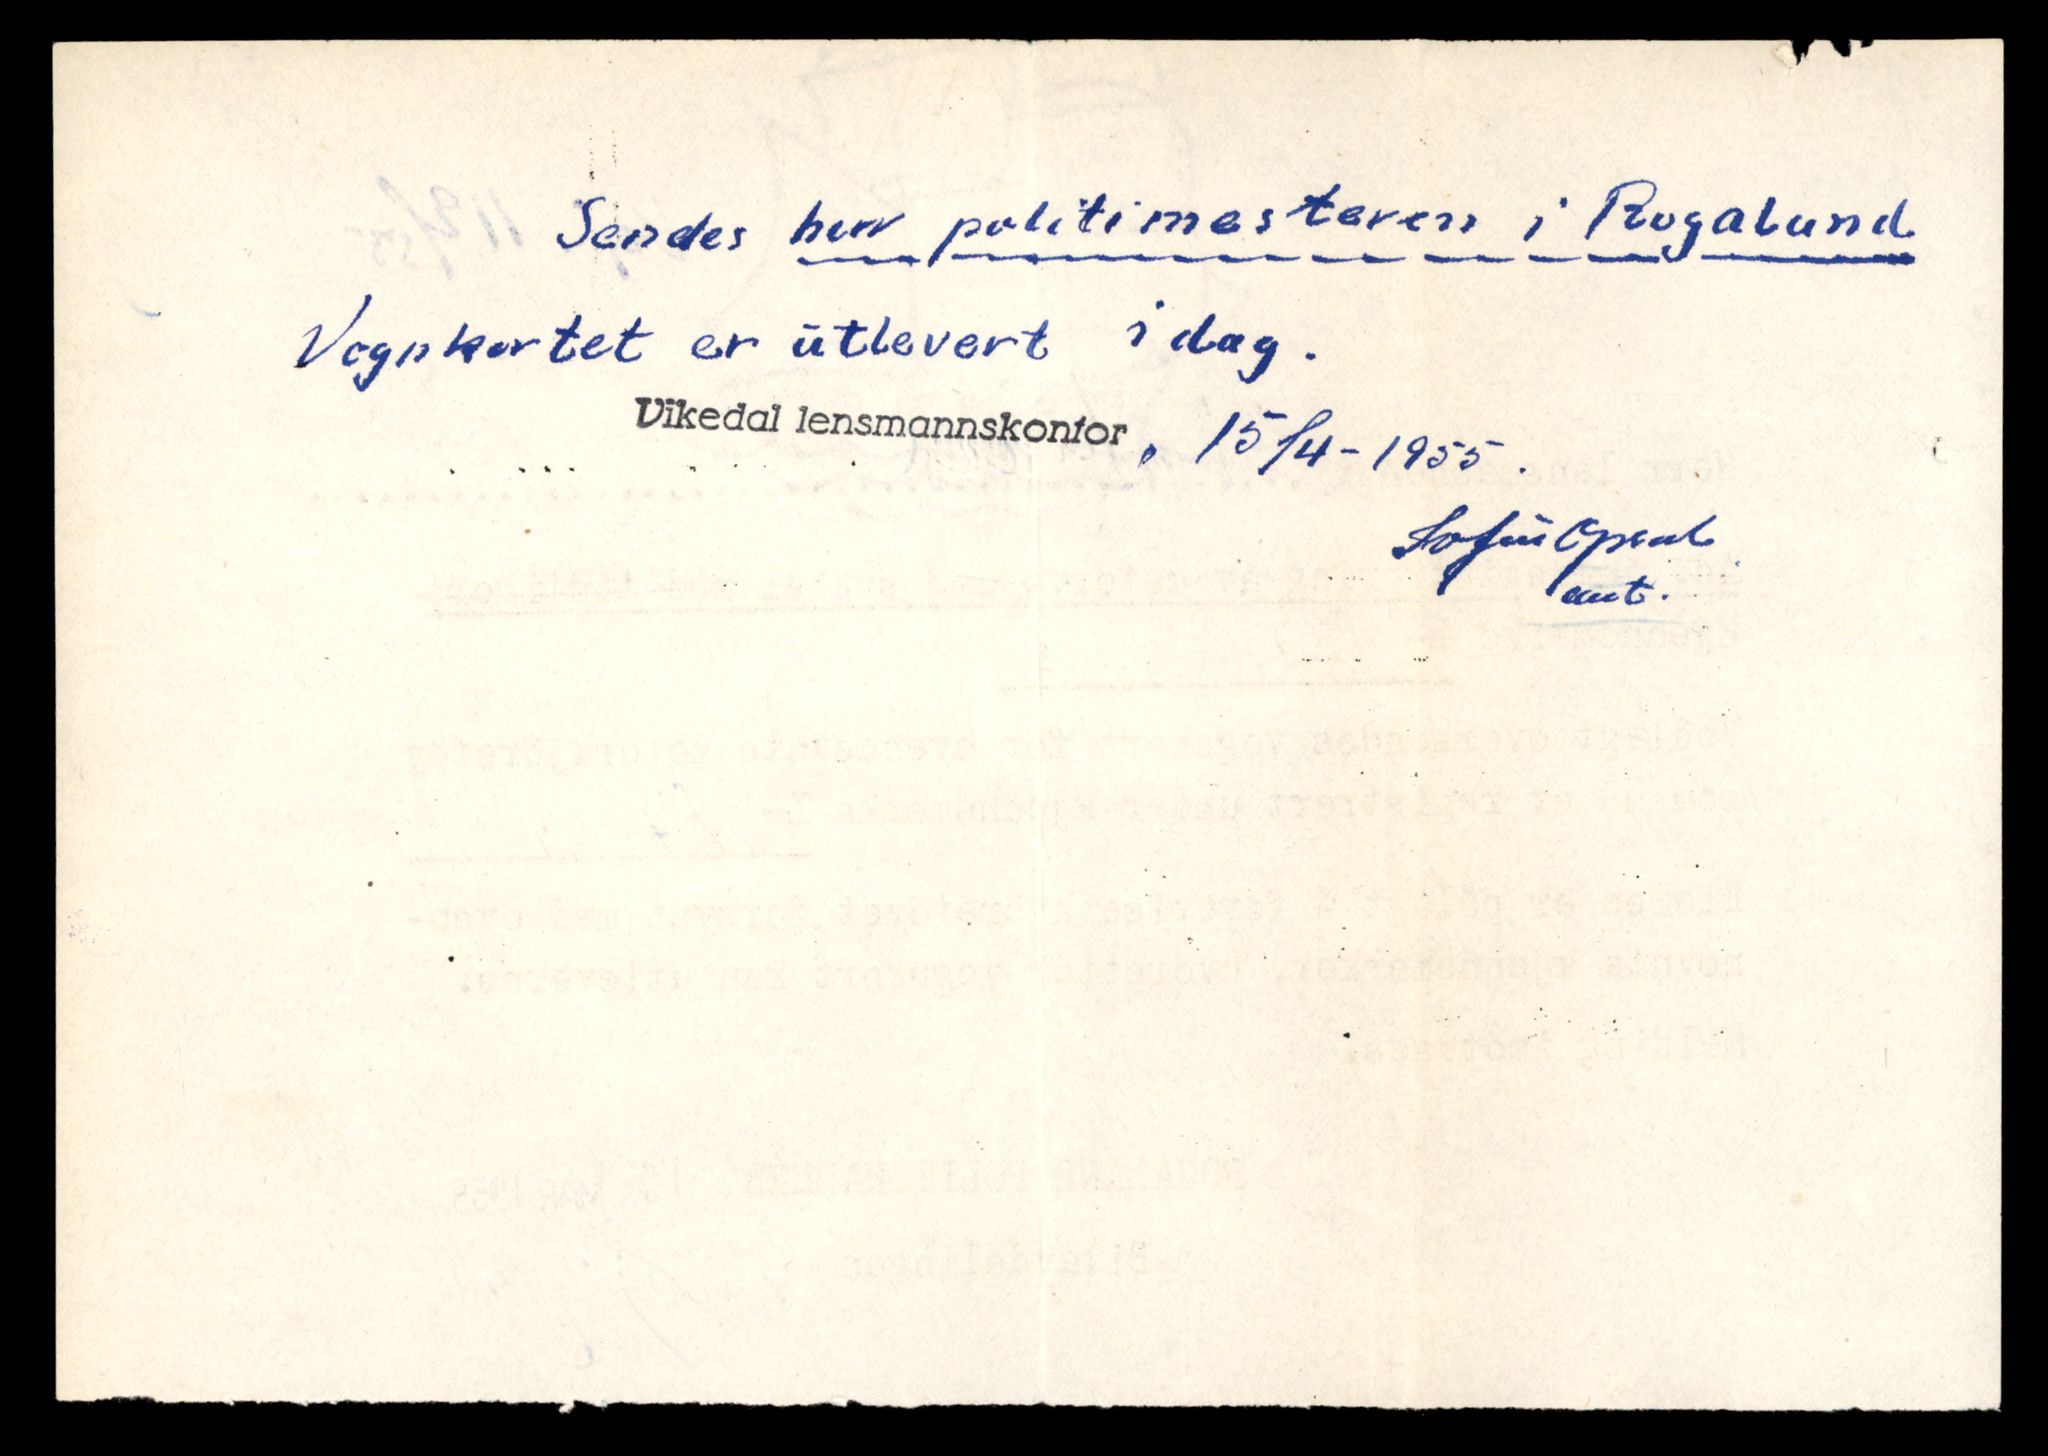 Sendes herr politimesteren i Rogaland
Vognkortet er utlevert i dag.
Vikedal lensmannskontor, 15/4-1955.
Sofie Opsal
aut.